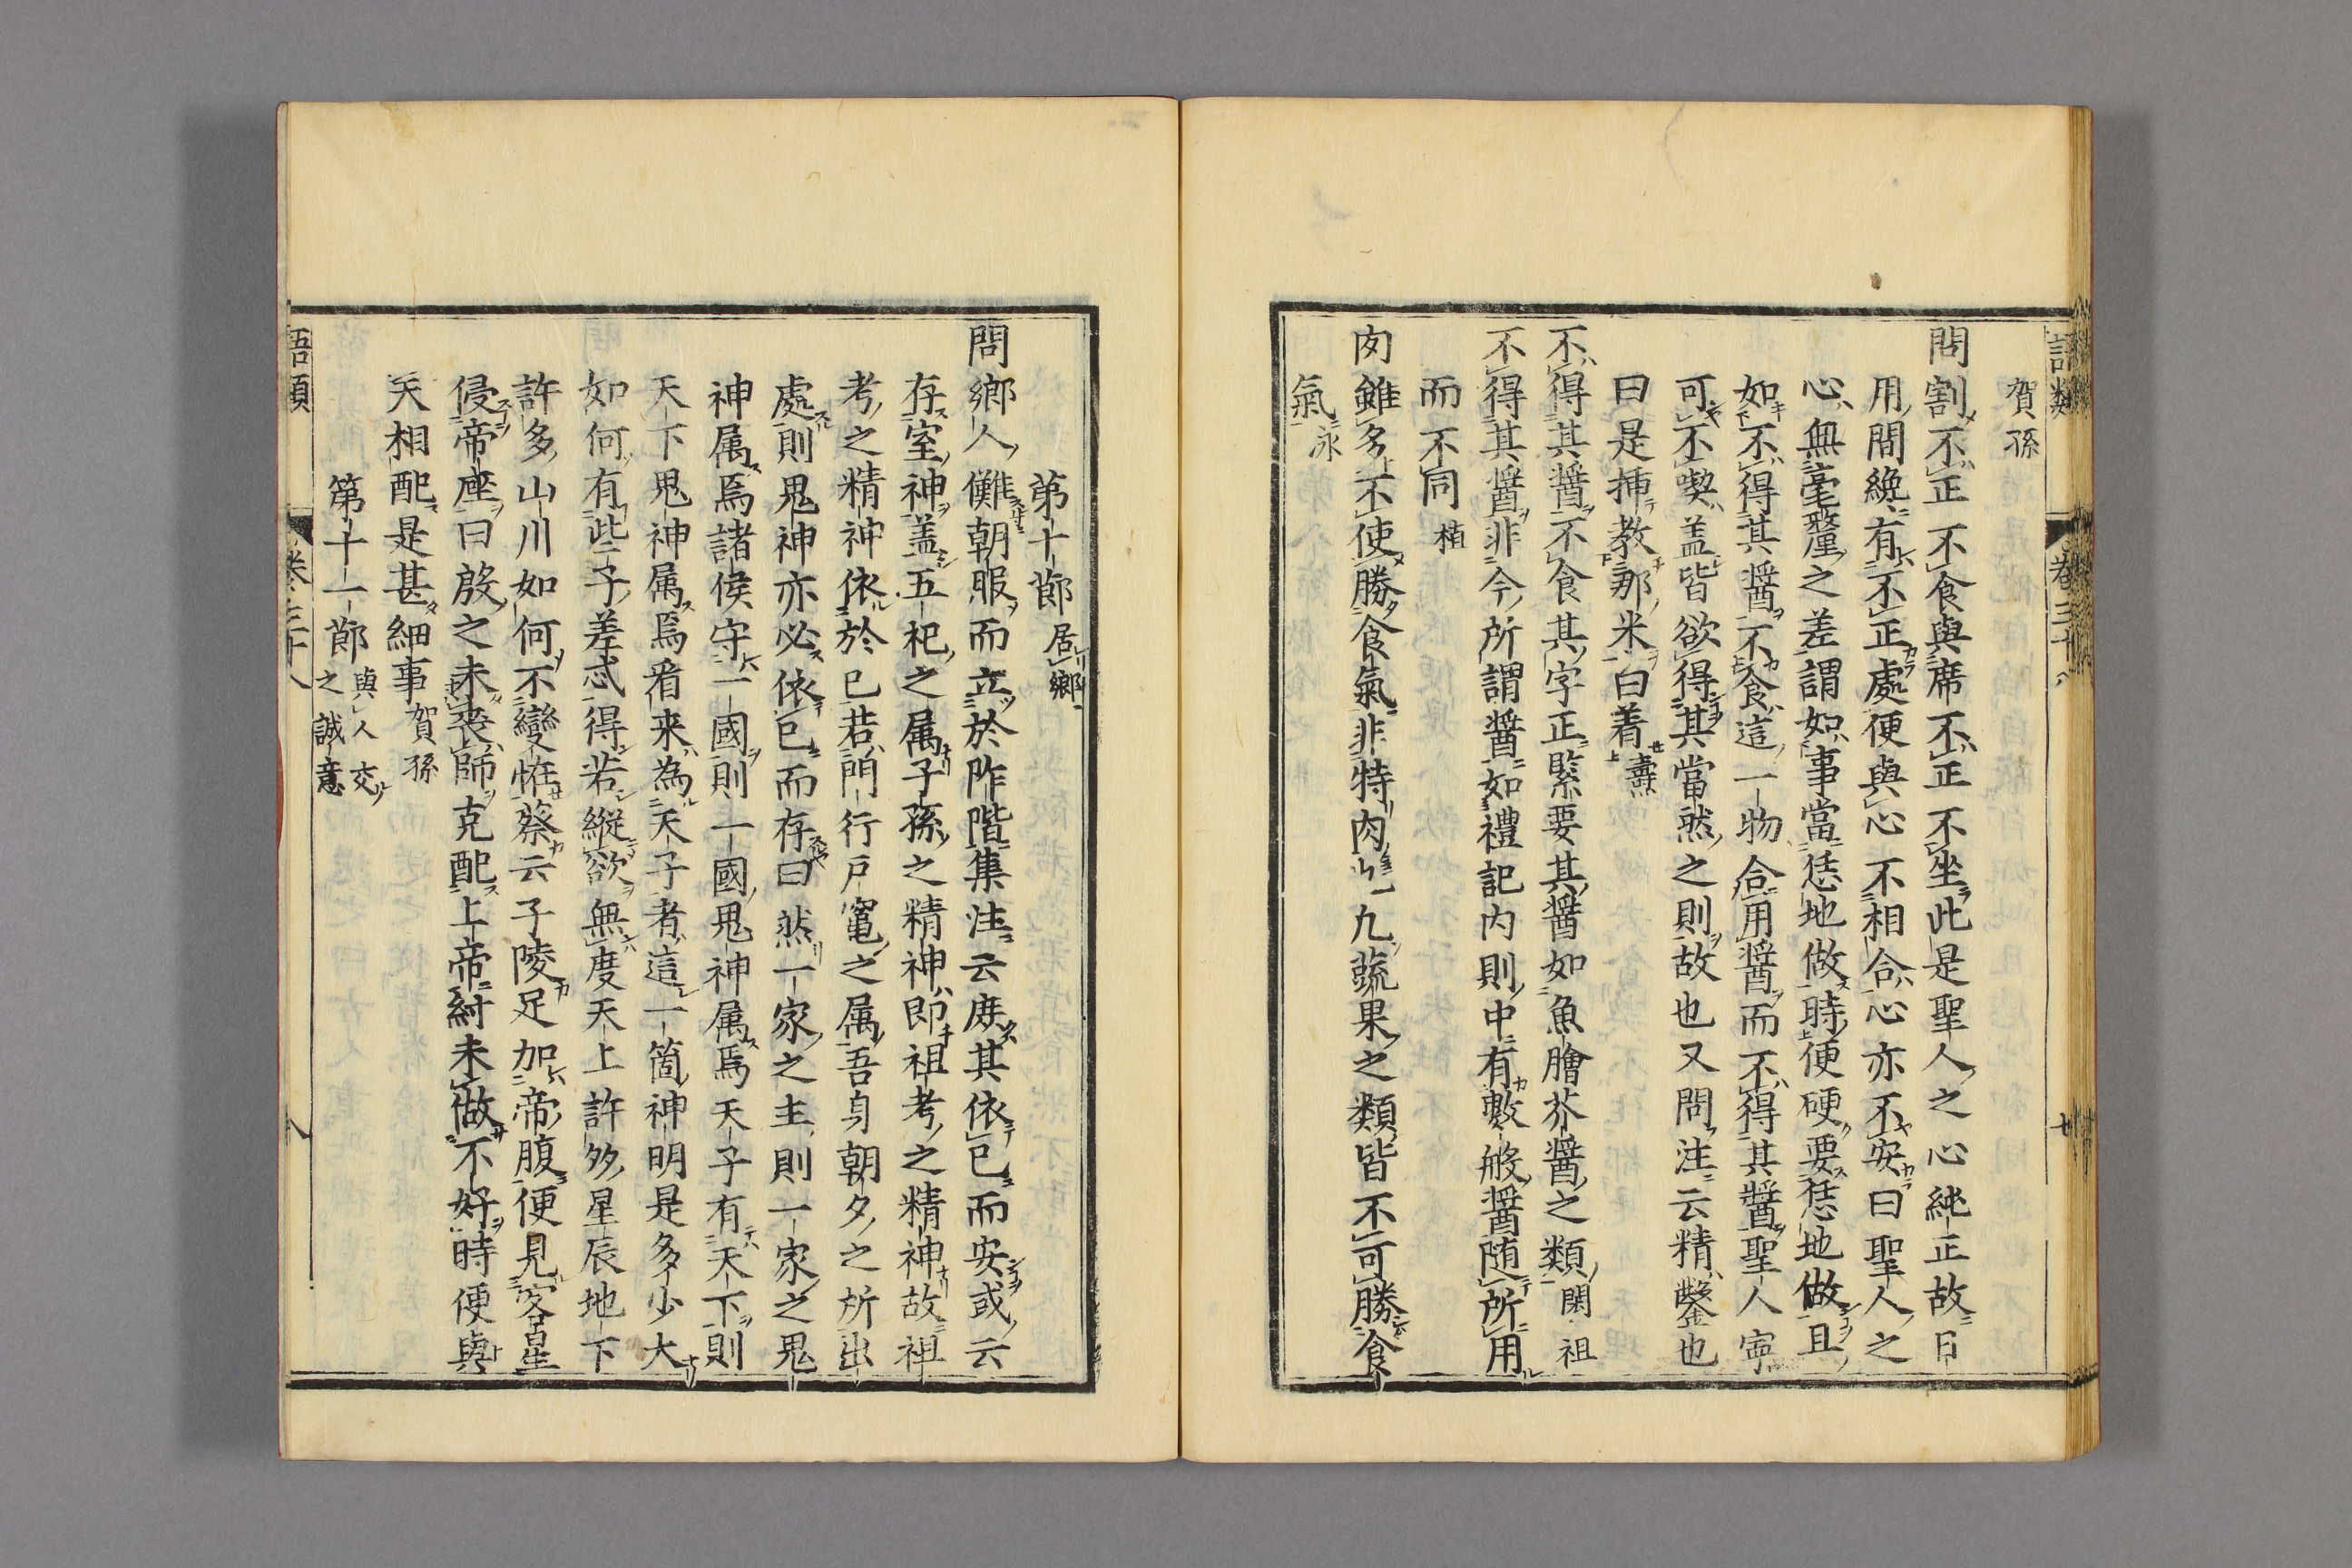 語類 卷三十八 七
賀孫
問割不正不食與席不正不坐此是聖人之心純正故日
用間纔有不正處便與心不相合心亦不安曰聖人之
心無毫釐之差謂如事當恁地做時便硬要恁地做且
如不得其醬不食這一物合用醬而不得其醬聖人寧
可不喫盖皆欲得其當然之則故也又問注云精鑿也
曰是揷教那米白着燾
不得其醬不食其字正緊要其醬如魚膾芥醬之類閎祖
不得其醬非今所謂醬如禮記内則中有數般醬随所用
而不同植
肉雖多不使勝食氣非特肉也凡蔬果之類皆不可勝食
氣泳
第十節居鄉
問鄉人儺朝服而立於阼階集注云庶其依已而安或云
存室神盖五祀之属子孫之精神即祖考之精神故祖
考之精神依於已若門行戶竈之属吾身朝夕之所出
處則鬼神亦必依已而存曰然一家之主則一家之鬼
神属焉諸侯守一國則一國鬼神属焉天子有天下則
天下鬼神属焉看来為天子者這一箇神明是多少大
如何有些子差忒得若縱欲無度天上許多星辰地下
許多山川如何不變恠蔡云子陵足加帝腹便見客星
侵帝座曰殷之未喪師克配上帝紂未做不好時便與
天相配是甚細事賀孫
第十一節與人交之誠意
語類 卷三十八 八